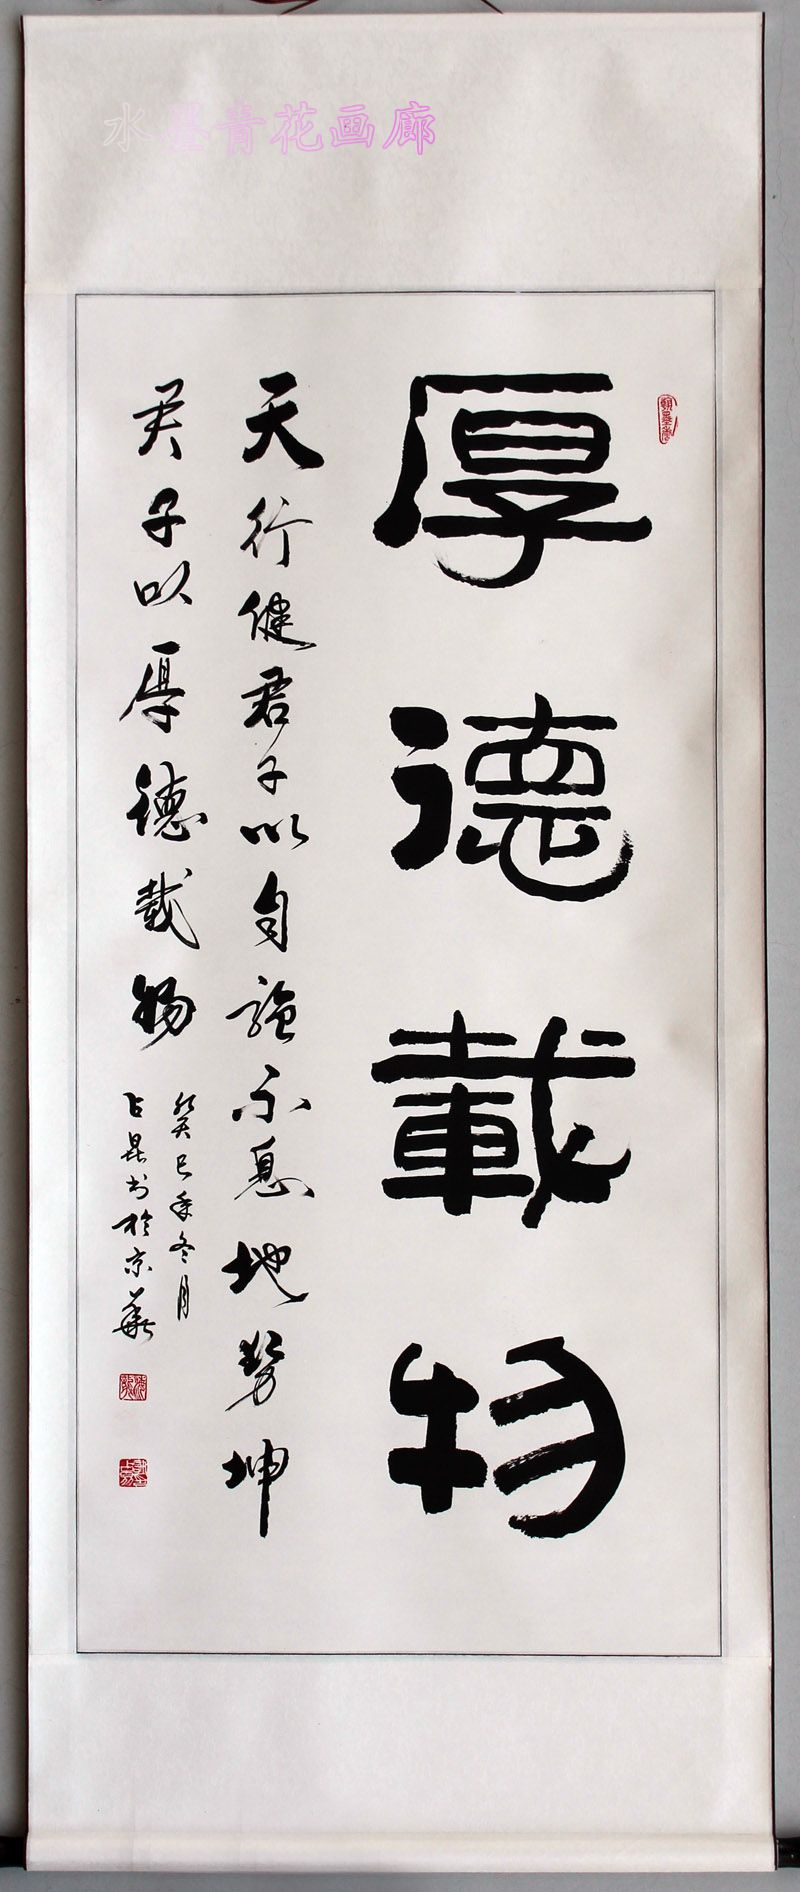 水墨青花画廊
厚德載物
天行健君子以自強不息地势坤
君子以厚德載物
癸巳年冬月
占昆书於京華